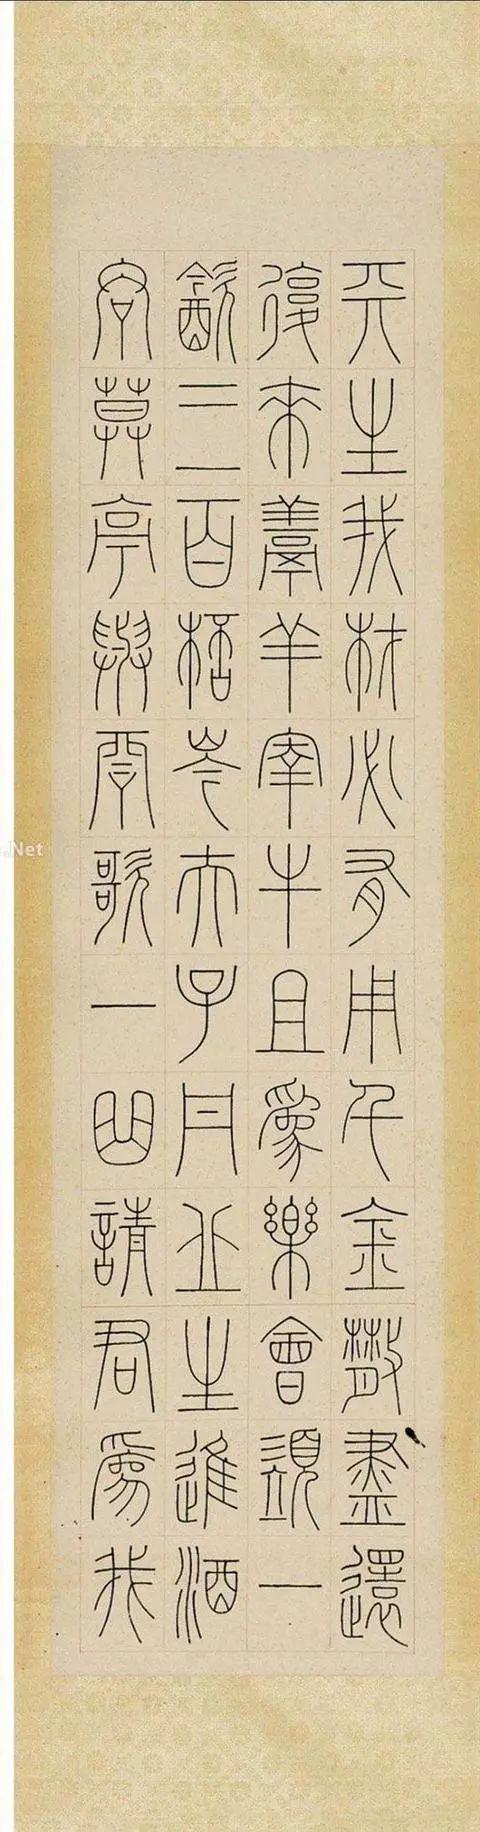 天生我材必有用千金散盡還
復來羊宰牛且為樂會須一
飲三百桮岑夫子丹丘生進酒
君莫亭與君歌一曲請君為我
.Net